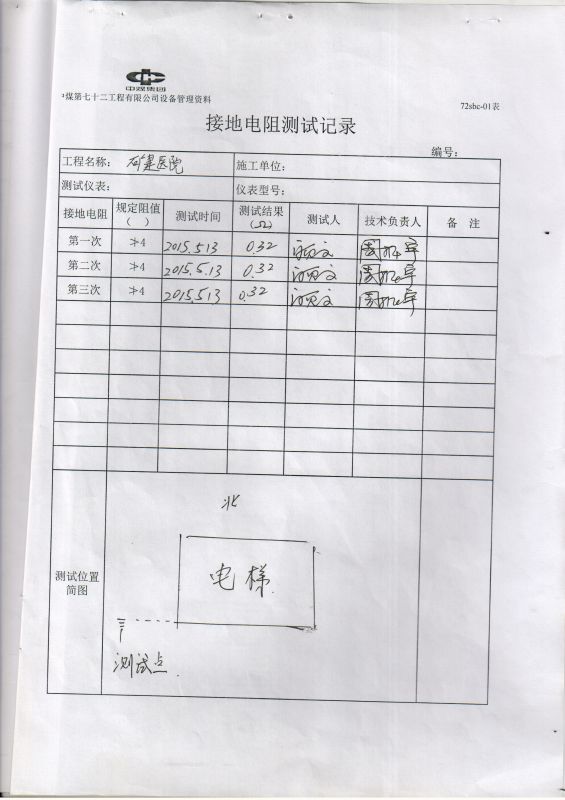 中煤集团
中煤第七十二工程有限公司设备管理资料
72sbc-01表
接地电阻测试记录
编号：
工程名称： 矿建医院 施工单位：
测试仪表： 仪表型号：
接地电阻 规定阻值（ ） 测试时间 测试结果（Ω） 测试人 技术负责人 备 注
第一次 ≯4 2015.5.13 0.32
第二次 ≯4 2015.5.13 0.32
第三次 ≯4 2015.5.13 0.32
北
电梯
测试位置
简图
测试点